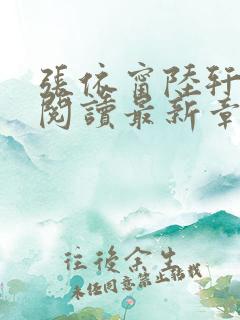 張依甯陸軒
閱讀最新章
往後余生
未經同意禁止轉載